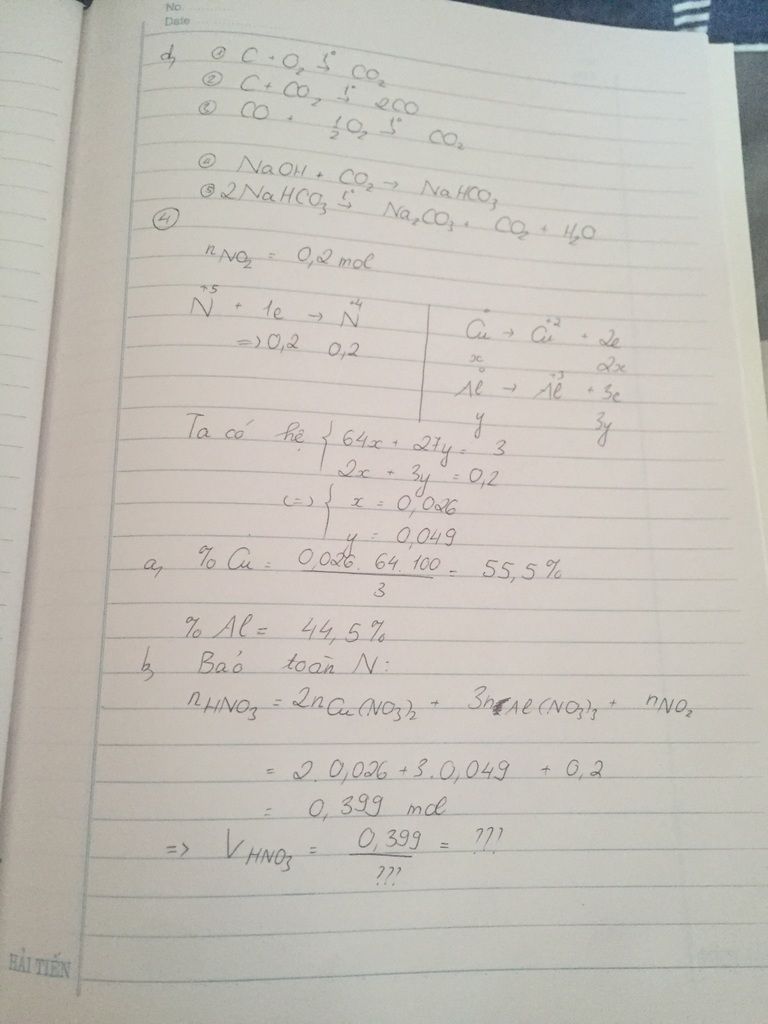 No
Date
d, ① C + O₂ t°→ CO₂
② C + CO₂ t°→ 2CO
③ CO + 1/2 O₂ t°→ CO₂
④ NaOH + CO₂ → NaHCO₃
⑤ 2NaHCO₃ t°→ Na₂CO₃ + CO₂ + H₂O
④
nNO₂ = 0,2 mol
N⁺⁵ + 1e → N⁺⁴
=> 0,2 0,2
Cu⁰ → Cu⁺² + 2e
x 2x
Al⁰ → Al⁺³ + 3e
y 3y
Ta có hệ { 64x + 27y = 3
2x + 3y = 0,2
<=> { x = 0,026
y = 0,049
a, % Cu = 0,026 . 64 . 100 / 3 = 55,5%
% Al = 44,5%
b, Bảo toàn N:
nHNO₃ = 2nCu(NO₃)₂ + 3nAl(NO₃)₃ + nNO₂
= 2. 0,026 + 3. 0,049 + 0,2
= 0,399 mol
=> VHNO₃ = 0,399 / ??? = ???
HẢI TIẾN